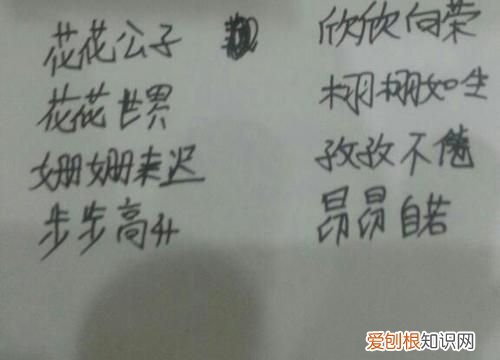 花花公子 欣欣向荣
花花世界 栩栩如生
姗姗来迟 孜孜不倦
步步高升 昂昂自若
爱刨根知识网